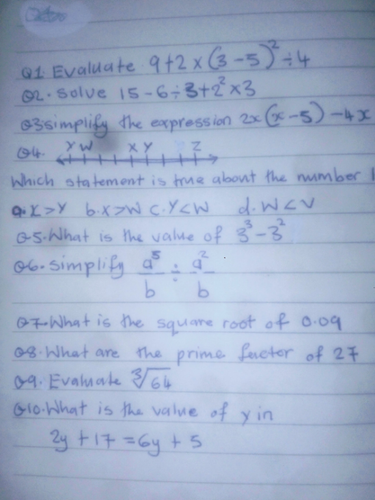 Q1. Evaluate 9+2×(3-5)²÷4
Q2. Solve 15-6÷3+2²×3
Q3 simplify the expression 2x(x-5)-4x
Q4. Y W X Y Z
Which statement is true about the number l
a. X>Y b. X>W c. Y<W d. W<V
Q5. What is the value of 3³-3²
Q6. Simplify a⁵/b ÷ a²/b
Q7. What is the square root of 0.09
Q8. What are the prime factor of 27
Q9. Evaluate ∛64
Q10. What is the value of y in
2y + 17 = 6y + 5